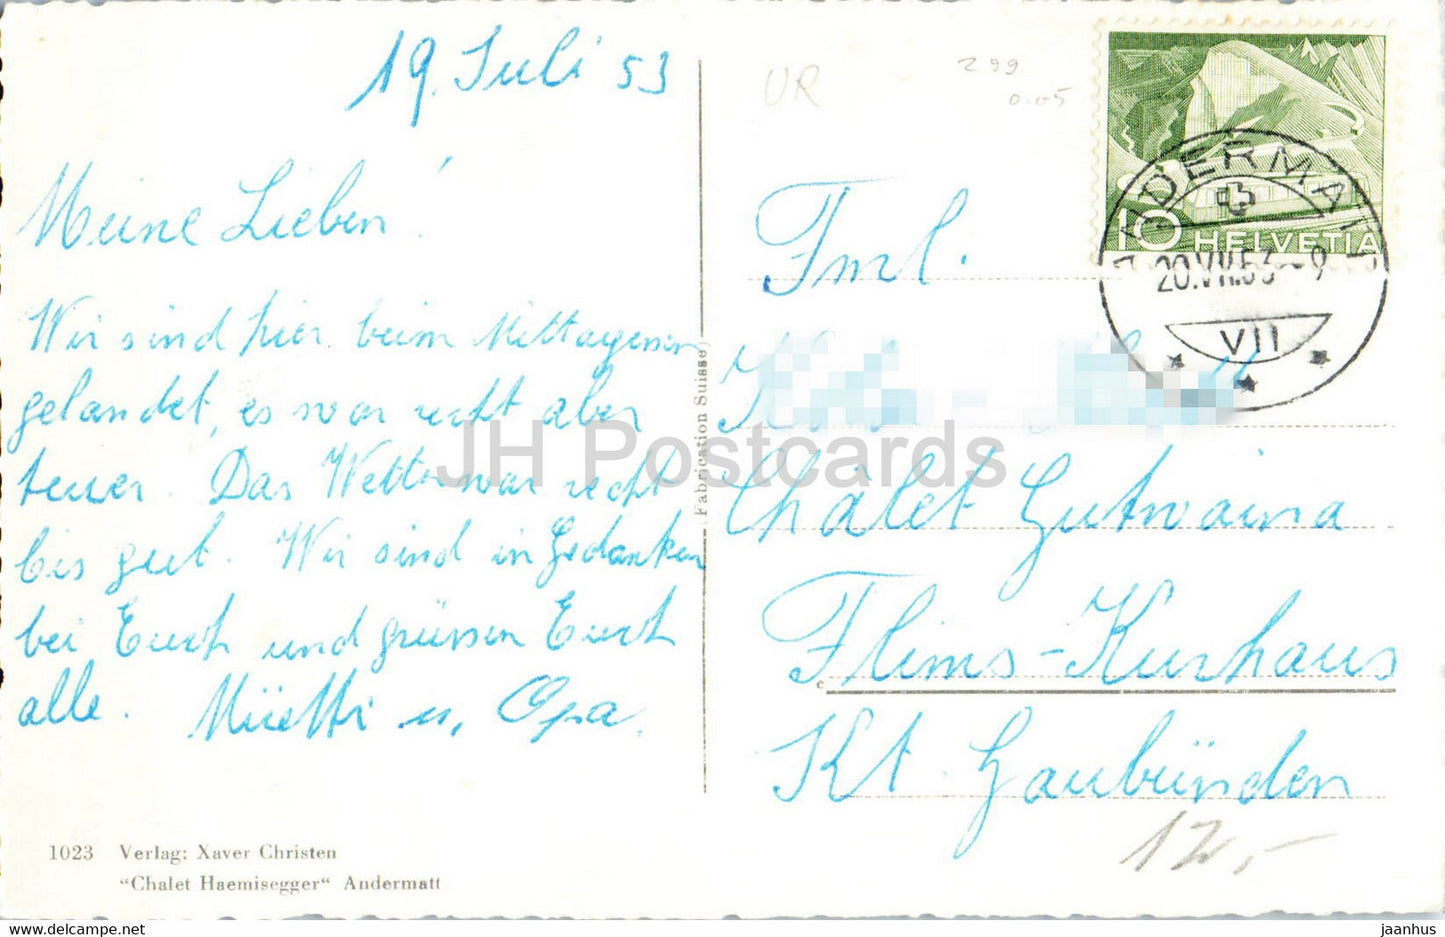 19. Juli 53
Meine Lieben!
Wir sind hier beim Mittagessen
gelandet, es war recht aber
teuer. Das Wetter war recht
bis gut. Wir sind in Gedanken
bei Euch und grüssen Euch
alle. Müetti u. Opa.
1023 Verlag: Xaver Christen
"Chalet Haemisegger" Andermatt
Fabrication Suisse
UR
299
0.05
10 HELVETIA
ANDERMATT
20.VII.53-9
VII
Fml.
Châlet Gutvaina
Flims-Kurhaus
Kt. Gaubünden
12,-
JH Postcards
www.hipwee.com
jaanhus